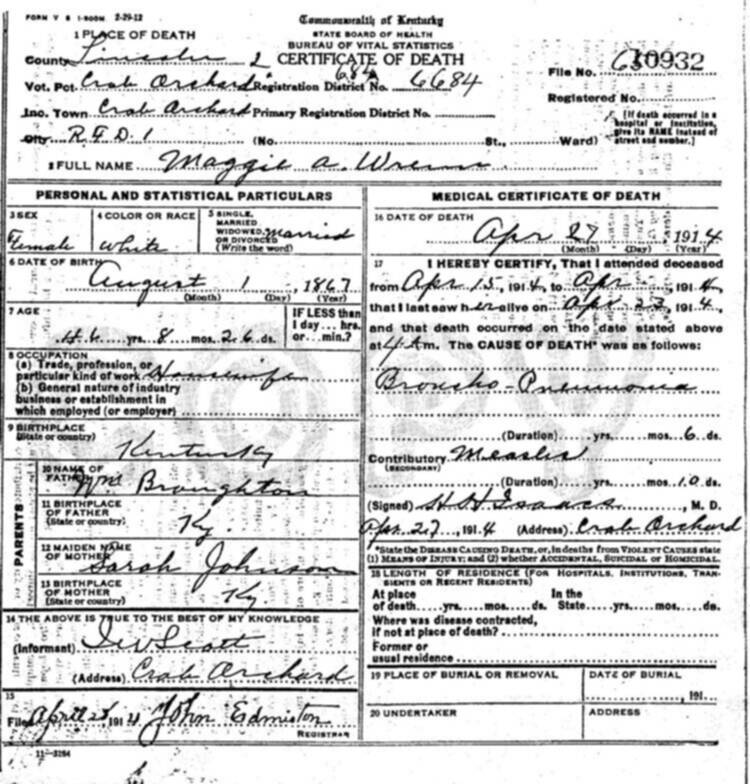 FORM V S 1-500M. 2-29-12
Commonwealth of Kentucky
STATE BOARD OF HEALTH
BUREAU OF VITAL STATISTICS
CERTIFICATE OF DEATH
1 PLACE OF DEATH
County Lincoln 2
File No. 10932
Vot. Pct. Crab Orchard Registration District No. 684 6684
Registered No.
Inc. Town Crab Orchard Primary Registration District No.
City R.F.D. 1 (No. St., Ward)
[If death occurred in a hospital or institution, give its NAME instead of street and number.]
2 FULL NAME Maggie A. Wrenn
PERSONAL AND STATISTICAL PARTICULARS
3 SEX
Female
4 COLOR OR RACE
White
5 SINGLE, MARRIED WIDOWED, OR DIVORCED (Write the word)
married
6 DATE OF BIRTH
August 1, 1867
(Month) (Day) (Year)
7 AGE
46 yrs. 8 mos. 26 ds.
IF LESS than 1 day... hrs. or... min.?
8 OCCUPATION
(a) Trade, profession, or particular kind of work Housewife
(b) General nature of industry business or establishment in which employed (or employer)
9 BIRTHPLACE
(State or country)
Kentucky
PARENTS
10 NAME OF FATHER Wm Broughton
11 BIRTHPLACE OF FATHER (State or country) Ky.
12 MAIDEN NAME OF MOTHER Sarah Johnson
13 BIRTHPLACE OF MOTHER (State or country) Ky
14 THE ABOVE IS TRUE TO THE BEST OF MY KNOWLEDGE
(Informant) Scott
(Address) Crab Orchard
15
Filed April 28 191 John Edmiston
REGISTRAR
11-3184
MEDICAL CERTIFICATE OF DEATH
16 DATE OF DEATH
Apr 27 1914
(Month) (Day) (Year)
17 I HEREBY CERTIFY, That I attended deceased
from Apr 15, 1914, to Apr , 1914
that I last saw her alive on Apr 23, 1914,
and that death occurred on the date stated above
at 4 am. The CAUSE OF DEATH* was as follows:
Broncho-Pneumonia
(Duration) yrs. mos. 6 ds.
Contributory Measles
(SECONDARY)
(Duration) yrs. mos. 10 ds.
(Signed) H H Isaacs, M. D.
Apr. 27, 1914 (Address) Crab Orchard
*State the DISEASE CAUSING DEATH, or, in deaths from VIOLENT CAUSES state
(1) MEANS OF INJURY; and (2) whether ACCIDENTAL, SUICIDAL or HOMICIDAL.
18 LENGTH OF RESIDENCE (FOR HOSPITALS, INSTITUTIONS, TRANSIENTS OR RECENT RESIDENTS)
At place of death yrs. mos. ds. In the State yrs. mos. ds.
Where was disease contracted, if not at place of death?
Former or usual residence
19 PLACE OF BURIAL OR REMOVAL
DATE OF BURIAL
191
20 UNDERTAKER
ADDRESS